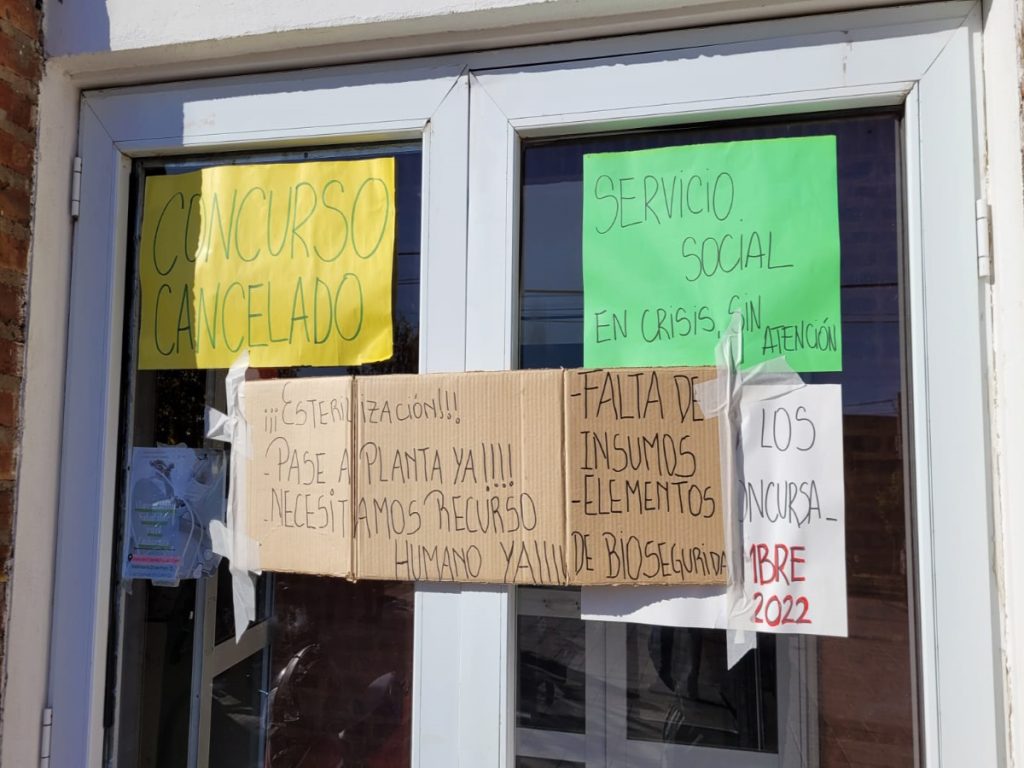 CONCURSO
CANCELADO
SERVICIO
SOCIAL
EN CRISIS, SIN
ATENCIÓN
¡¡¡ESTERILIZACIÓN!!!
-PASE A PLANTA YA!!!!
-NECESITAMOS RECURSO
HUMANO YA!!!!
-FALTA DE
INSUMOS
-ELEMENTOS
DE BIOSEGURIDA
LOS
ONCURSA-
MBRE
2022